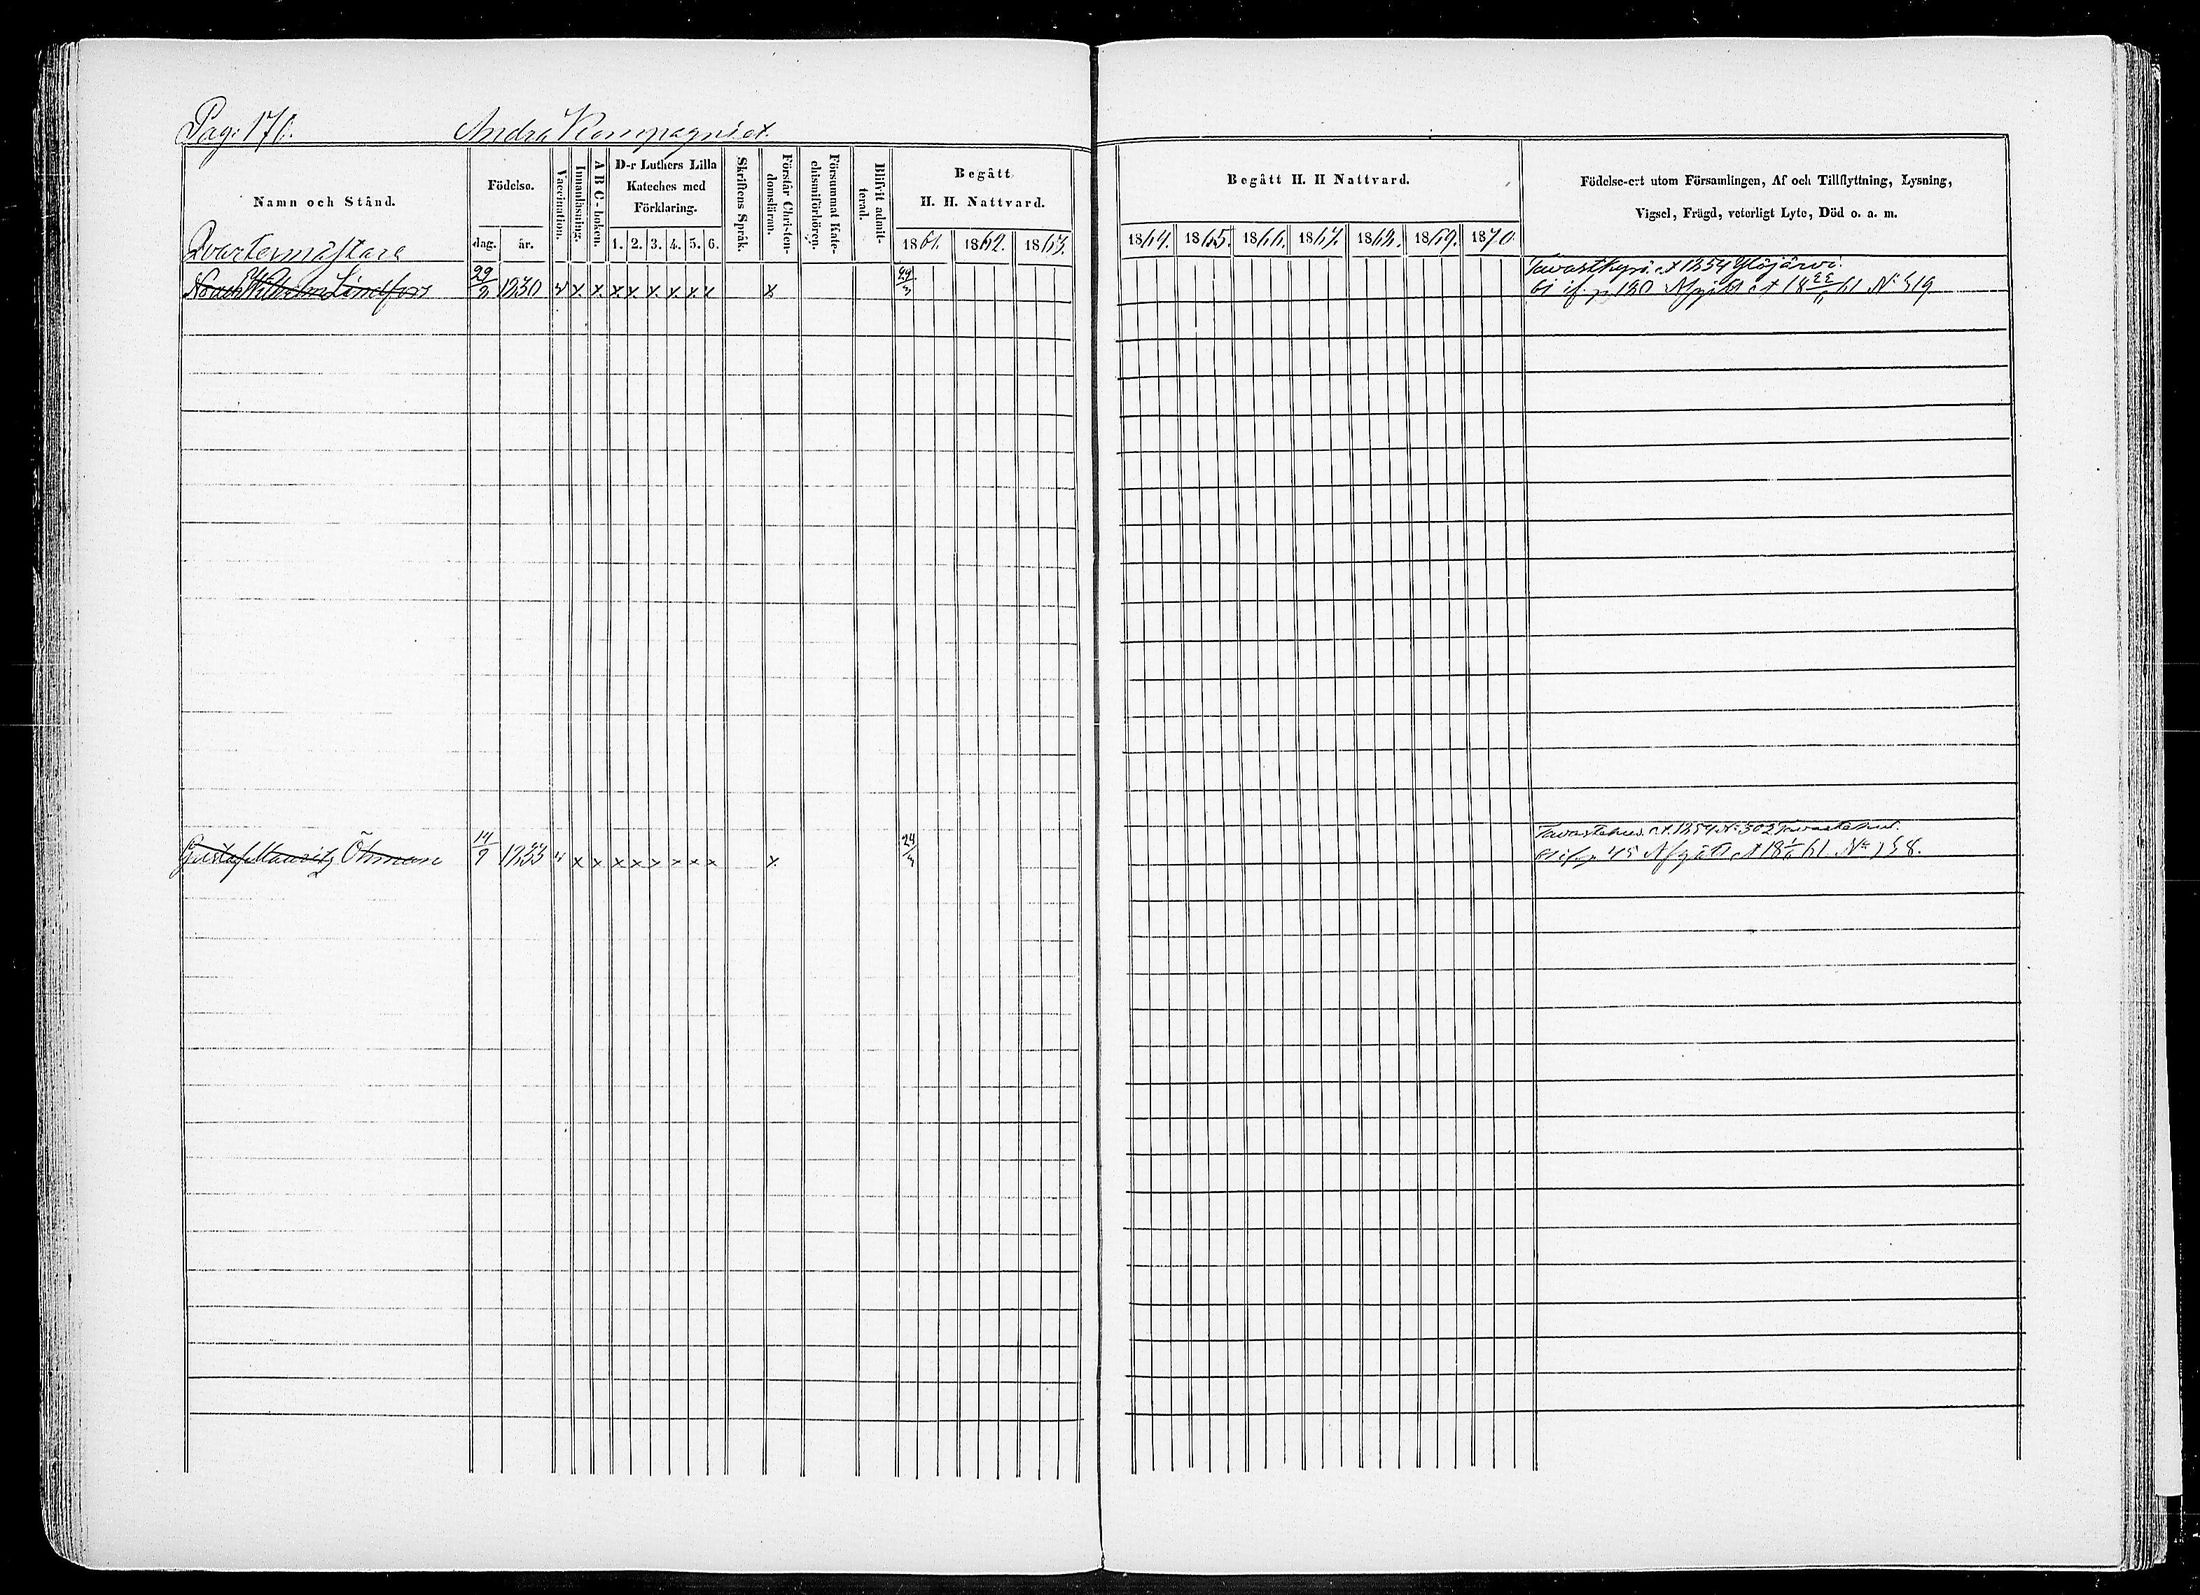 Pag. 171. Andra Kompagniet.
Namn och Stånd. Födelse. dag. år. Vaccination. Innanläsning. A B C-boken. D-r Luthers Lilla Kateches med Förklaring. 1. 2. 3. 4. 5. 6. Skriftens Språk. Förstår Christendomsläran. Försummat Katechismiförhören. Blifvit admitterad. Begått H. H. Nattvard. 1861. 1862. 1863.
Begått H. H Nattvard. 1864. 1865. 1866. 1867. 1868. 1869. 1870.
Födelse-ort utom Församlingen, Af och Tillflyttning, Lysning,
Vigsel, Frägd, veterligt Lyte, Död o. a. m.
Qvartermästare
Wilhelm Lindfors 29/3 1830 v x x x x x x x x x 24/3
Tavastkyro. at 1854 Ylöjärvi.
p. 130 Afgått at 18 /11 61 No 519
Gustaf Mauritz Öhman 14/9 1833 v x x x x x x x x x 24/3
Tavastehus. at. 1854 No 302 Tavastehus.
p 45 Afgått at 18 61. No 158.